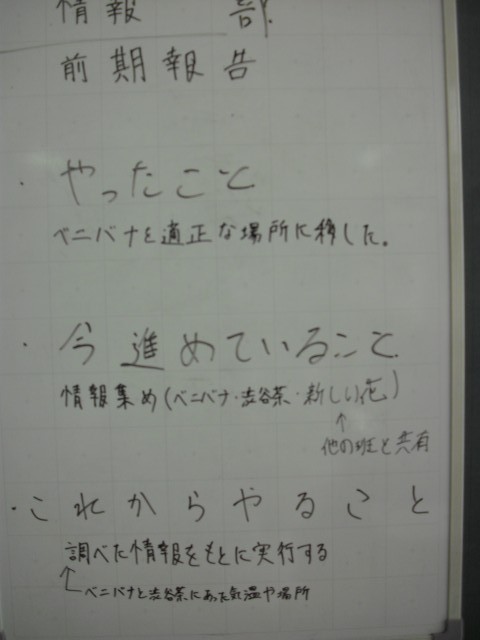 情報 部
前期報告
・やったこと
ベニバナを適正な場所に移した。
・今進めていること
情報集め(ベニバナ・渋谷茶・新しい花)
↑
他の班と共有
・これからやること
調べた情報をもとに実行する
↑ベニバナと渋谷茶にあった気温や場所